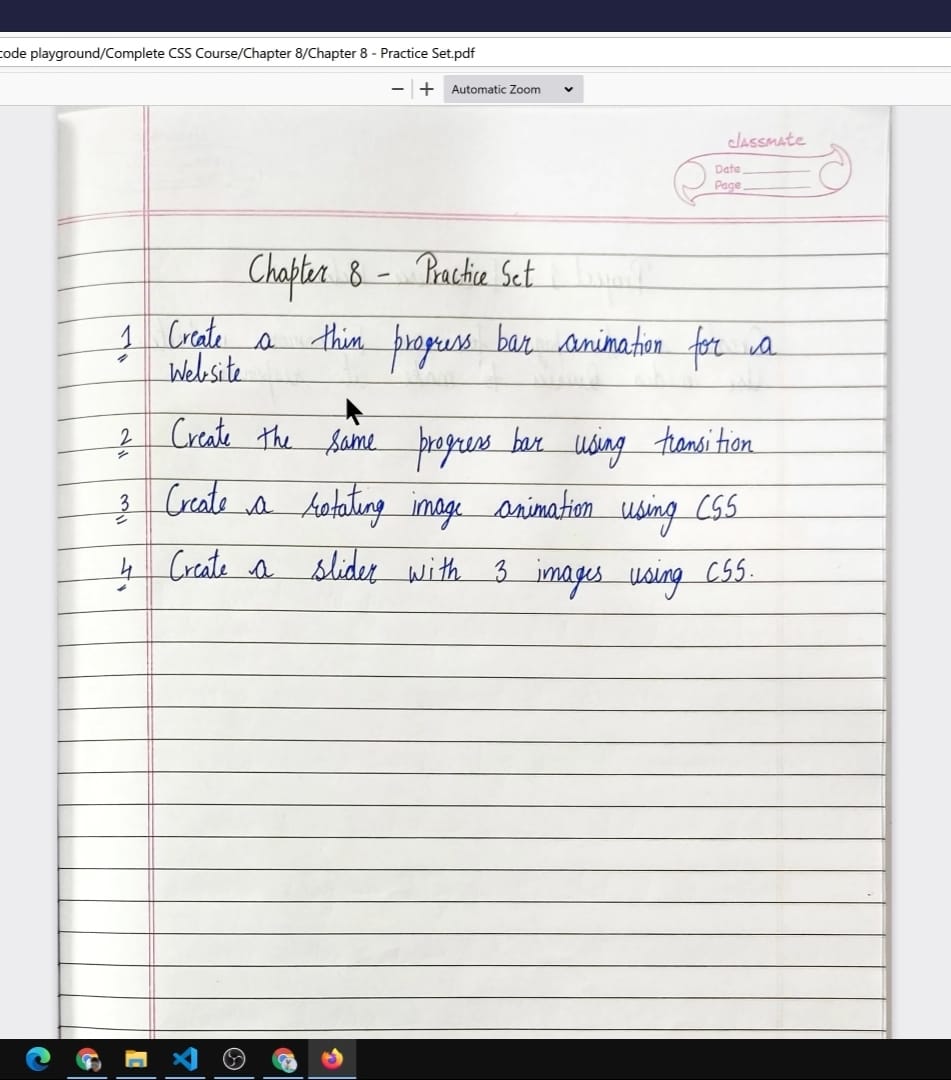 code playground/Complete CSS Course/Chapter 8/Chapter 8 - Practice Set.pdf
− + Automatic Zoom
classmate
Date
Page
Chapter 8 - Practice Set
1 Create a thin progress bar animation for a
Website
2 Create the same progress bar using transition
3 Create a rotating image animation using CSS
4 Create a slider with 3 images using CSS.